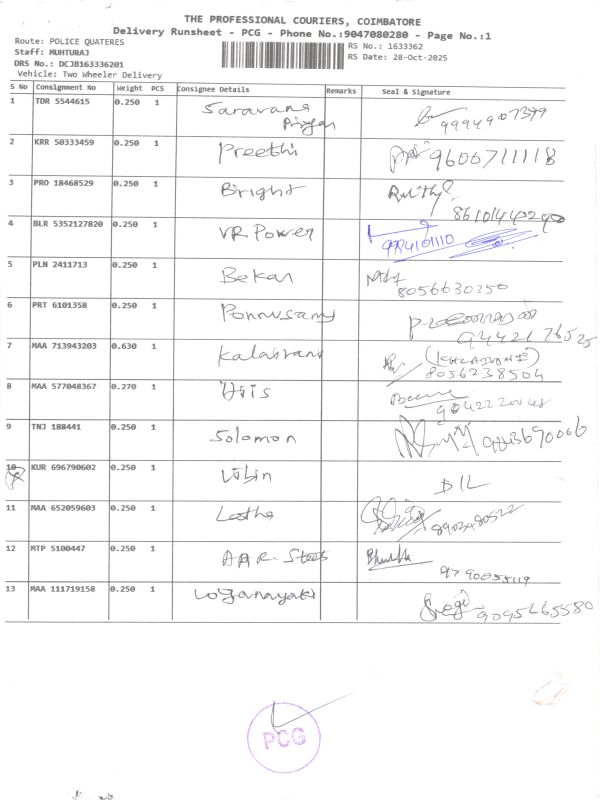 THE PROFESSIONAL COURIERS, COIMBATORE
Delivery Runsheet - PCG - Phone No.:9047080280 - Page No.:1
Route: POLICE QUATERES
RS No.: 1633362
Staff: MUHTURAJ
RS Date: 28-Oct-2025
DRS No.: DCJB163336201
Vehicle: Two Wheeler Delivery
S No Consignment No Weight PCS Consignee Details Remarks Seal & Signature
1 TDR 5544615 0.250 1 Saravana Priyan 9994907399
2 KRR 50333459 0.250 1 Preethi 9600711118
3 PRO 18468529 0.250 1 Bright
4 BLR 5352127820 0.250 1 VR. Power
5 PLN 2411713 0.250 1 8056630250
6 PRT 6101358 0.250 1 Ponnusamy
7 MAA 713943203 0.630 1 8056238504
8 MAA 577048367 0.270 1
9 TNJ 188441 0.250 1 Solomon
10 KUR 696790602 0.250 1 DIL
11 MAA 652059603 0.250 1
12 MTP 5100447 0.250 1
13 MAA 111719158 0.250 1 Loganayaki
PCG